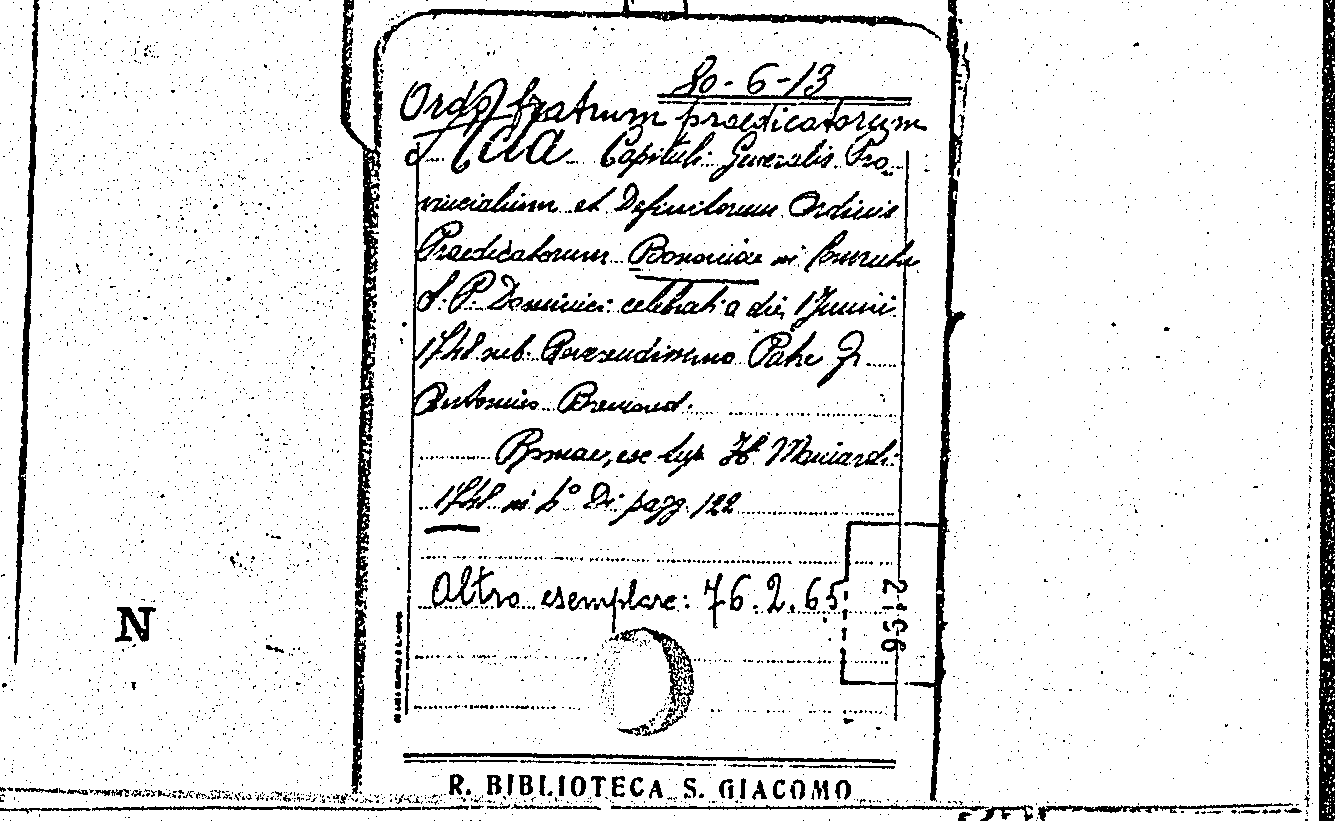 80-6-13
Ordo fratrum praedicatorum
Acta Capituli Generalis Pro
vincialium et Definitorum Ordinis
Praedicatorum Bononiae in Conventu
S. P. Dominici celebrati a die, 1 Junii
1748 sub. Reverendissimo Patre Fr
Antonino Bremond.
Romae, ex typ. H. Mainardi
1748 in 4° Di pagg. 122
Altro esemplare: 76.2.65
2156
N
R. BIBLIOTECA S. GIACOMO